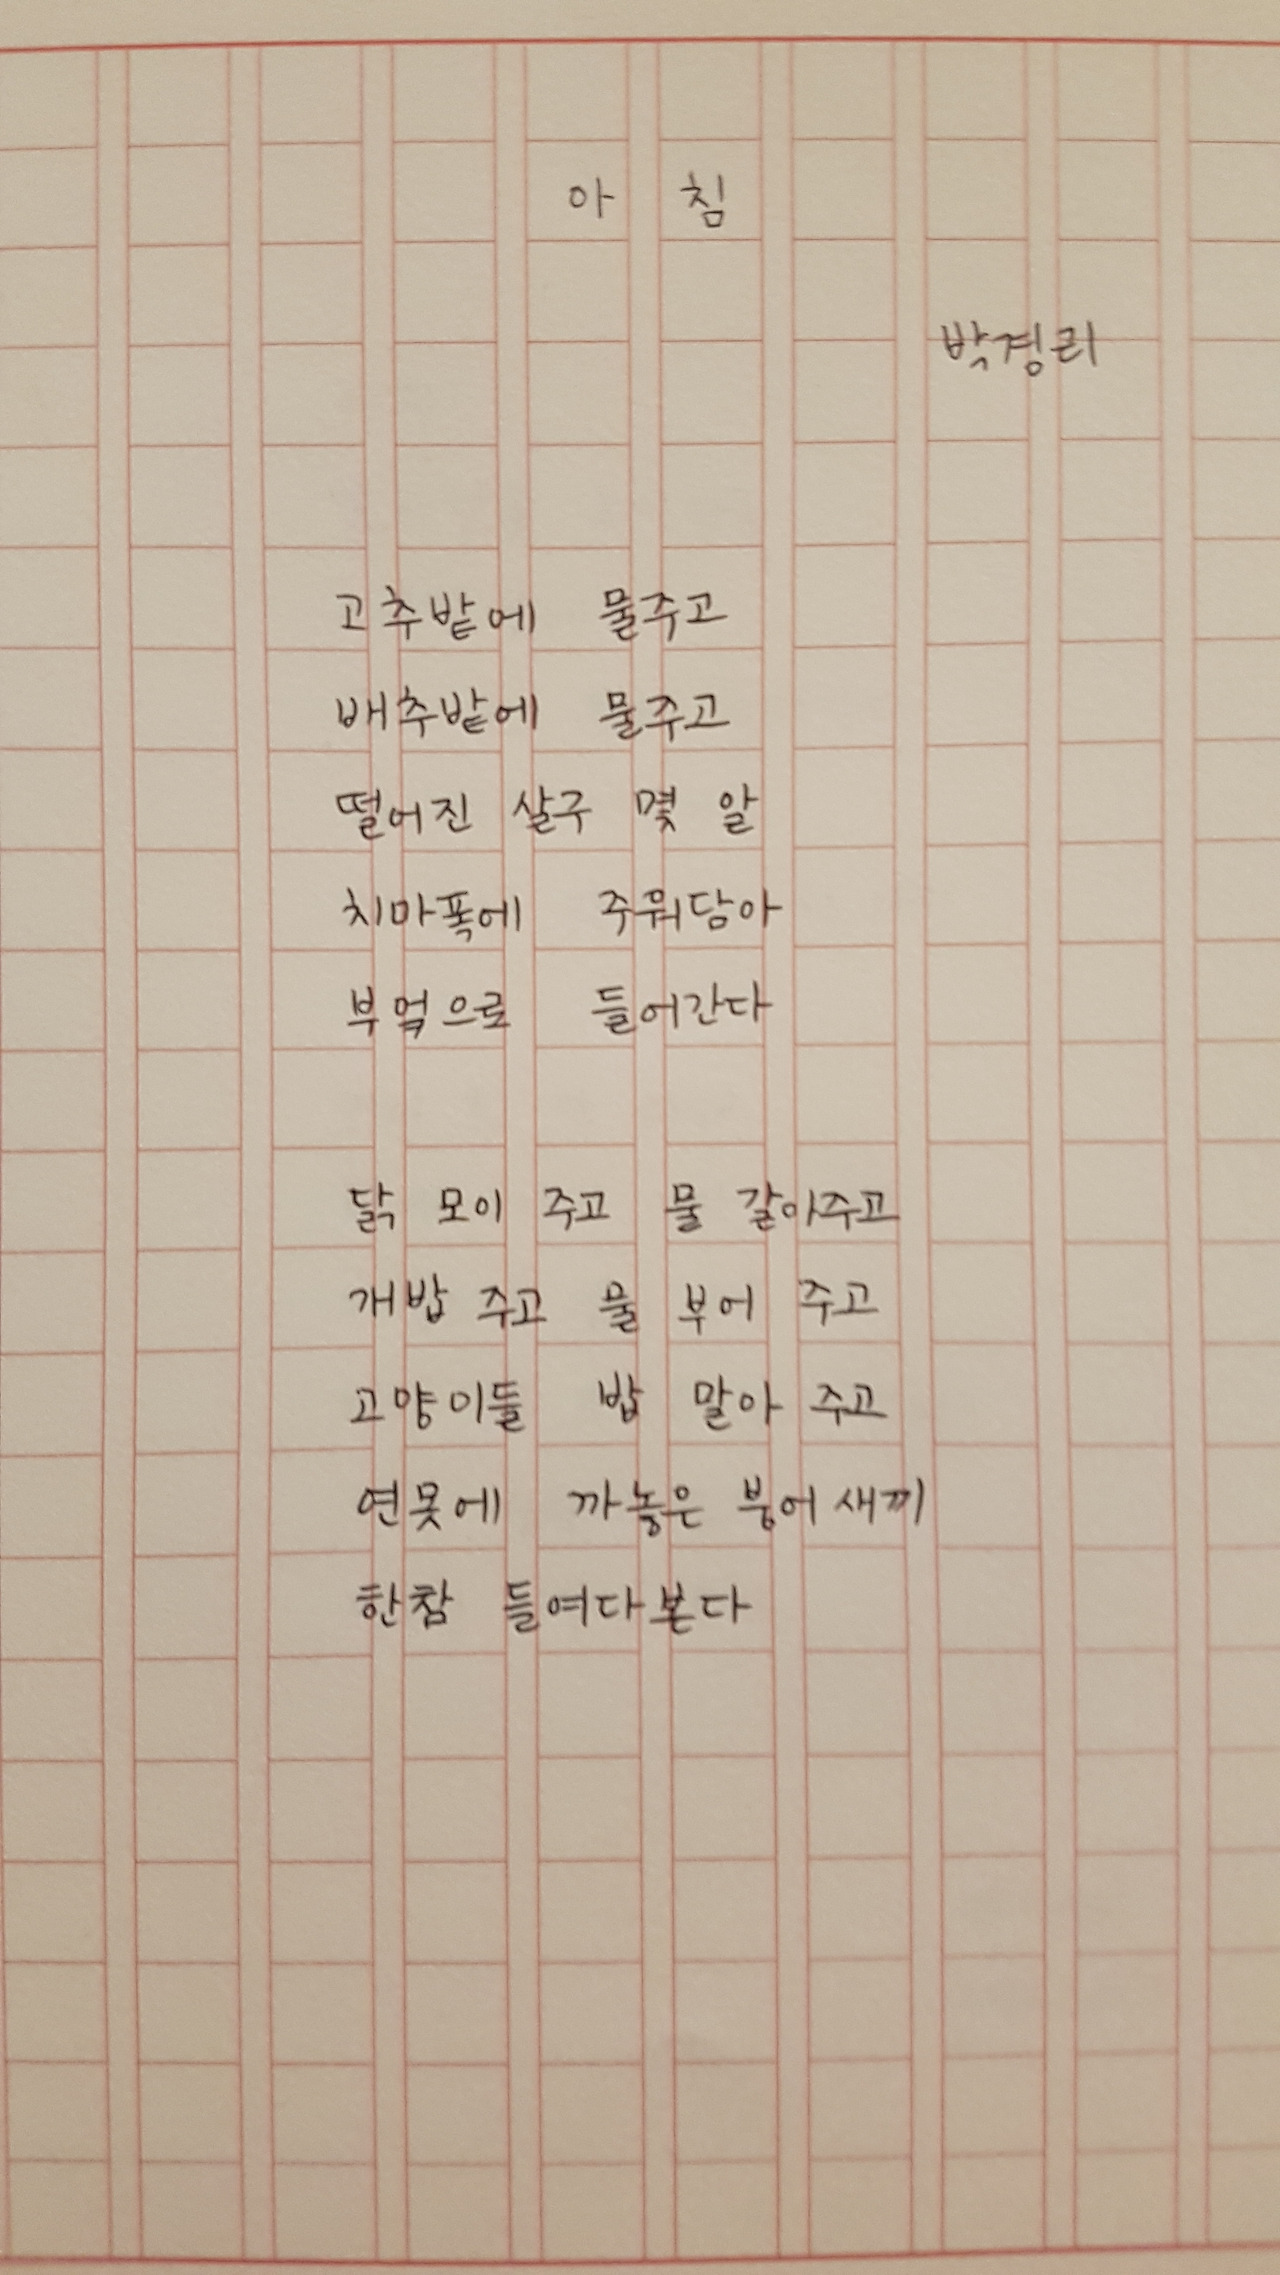 아 침
박경리
고추밭에 물주고
배추밭에 물주고
떨어진 살구 몇 알
치마폭에 주워담아
부엌으로 들어간다
닭 모이 주고 물 갈아주고
개밥 주고 물 부어 주고
고양이들 밥 말아 주고
연못에 까놓은 붕어새끼
한참 들여다본다